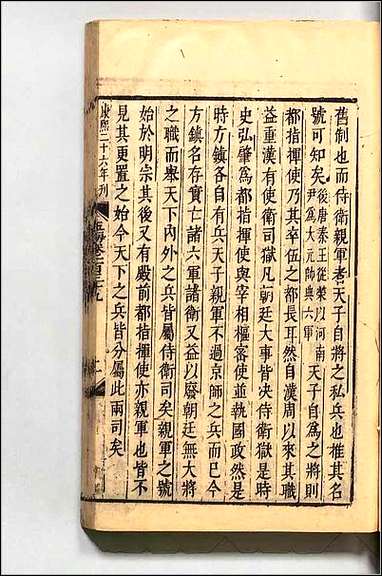 舊制也而侍衛親軍者天子自將之私兵也推其名
號可知矣後唐秦王從榮以河南尹爲大元帥典六軍天子自爲之將則
都指揮使乃其卒伍之都長耳然自漢周以來其職
益重漢有侍衛司獄凡朝廷大事皆決侍衛獄是時
史弘肇爲都指揮使與宰相樞宻使並執國政然是
時方鎮各自有兵天子親軍不過京師之兵而已今
方鎮名存實亡諸六軍諸衛又益以廢朝廷無大將
之職而舉天下內外之兵皆屬侍衛司矣親軍之號
始於明宗其後又有殿前都指揮使亦親軍也皆不
見其更置之始今天下之兵皆分屬此兩司矣
康熙二十六年刊